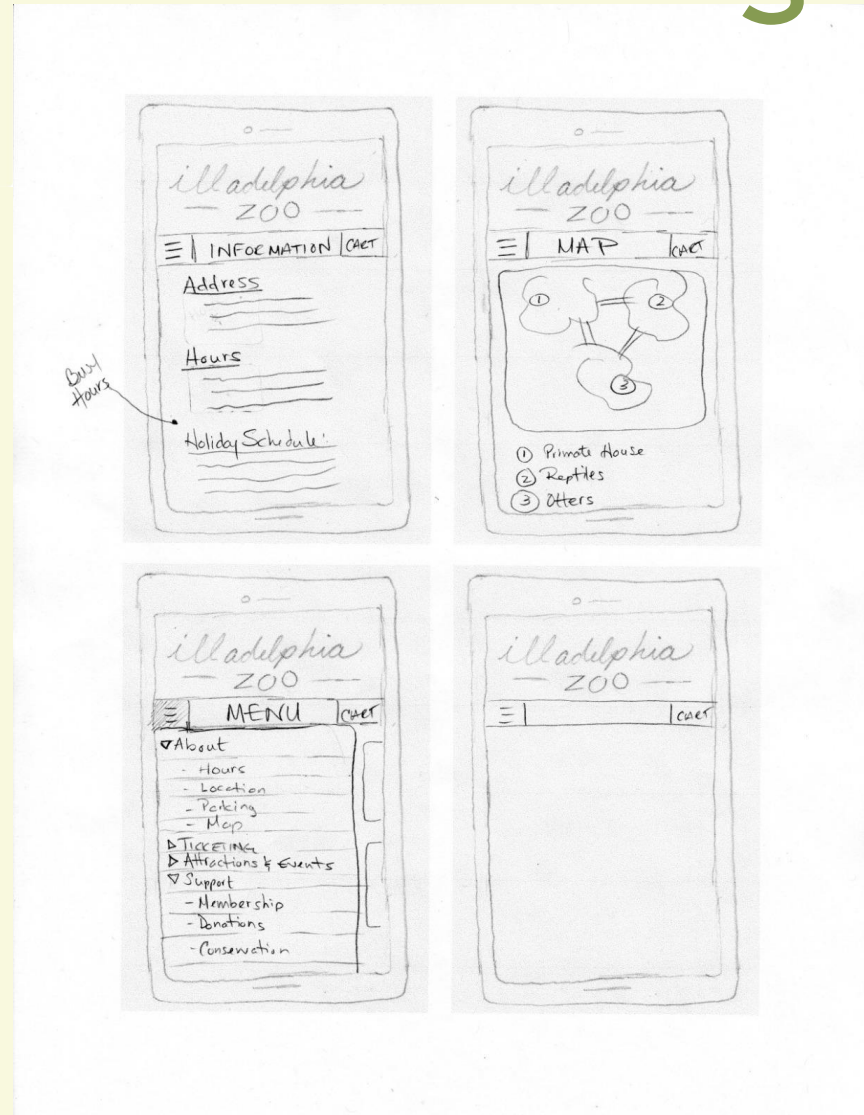 illadelphia
ZOO
INFORMATION CART
Address
Hours
Busy
Hours
Holiday Schedule:
illadelphia
ZOO
MAP CART
1 2
3
1 Primate House
2 Reptiles
3 Otters
illadelphia
ZOO
MENU CART
About
- Hours
- Location
- Parking
- Map
TICKETING
Attractions & Events
Support
- Membership
- Donations
- Conservation
illadelphia
ZOO
CART